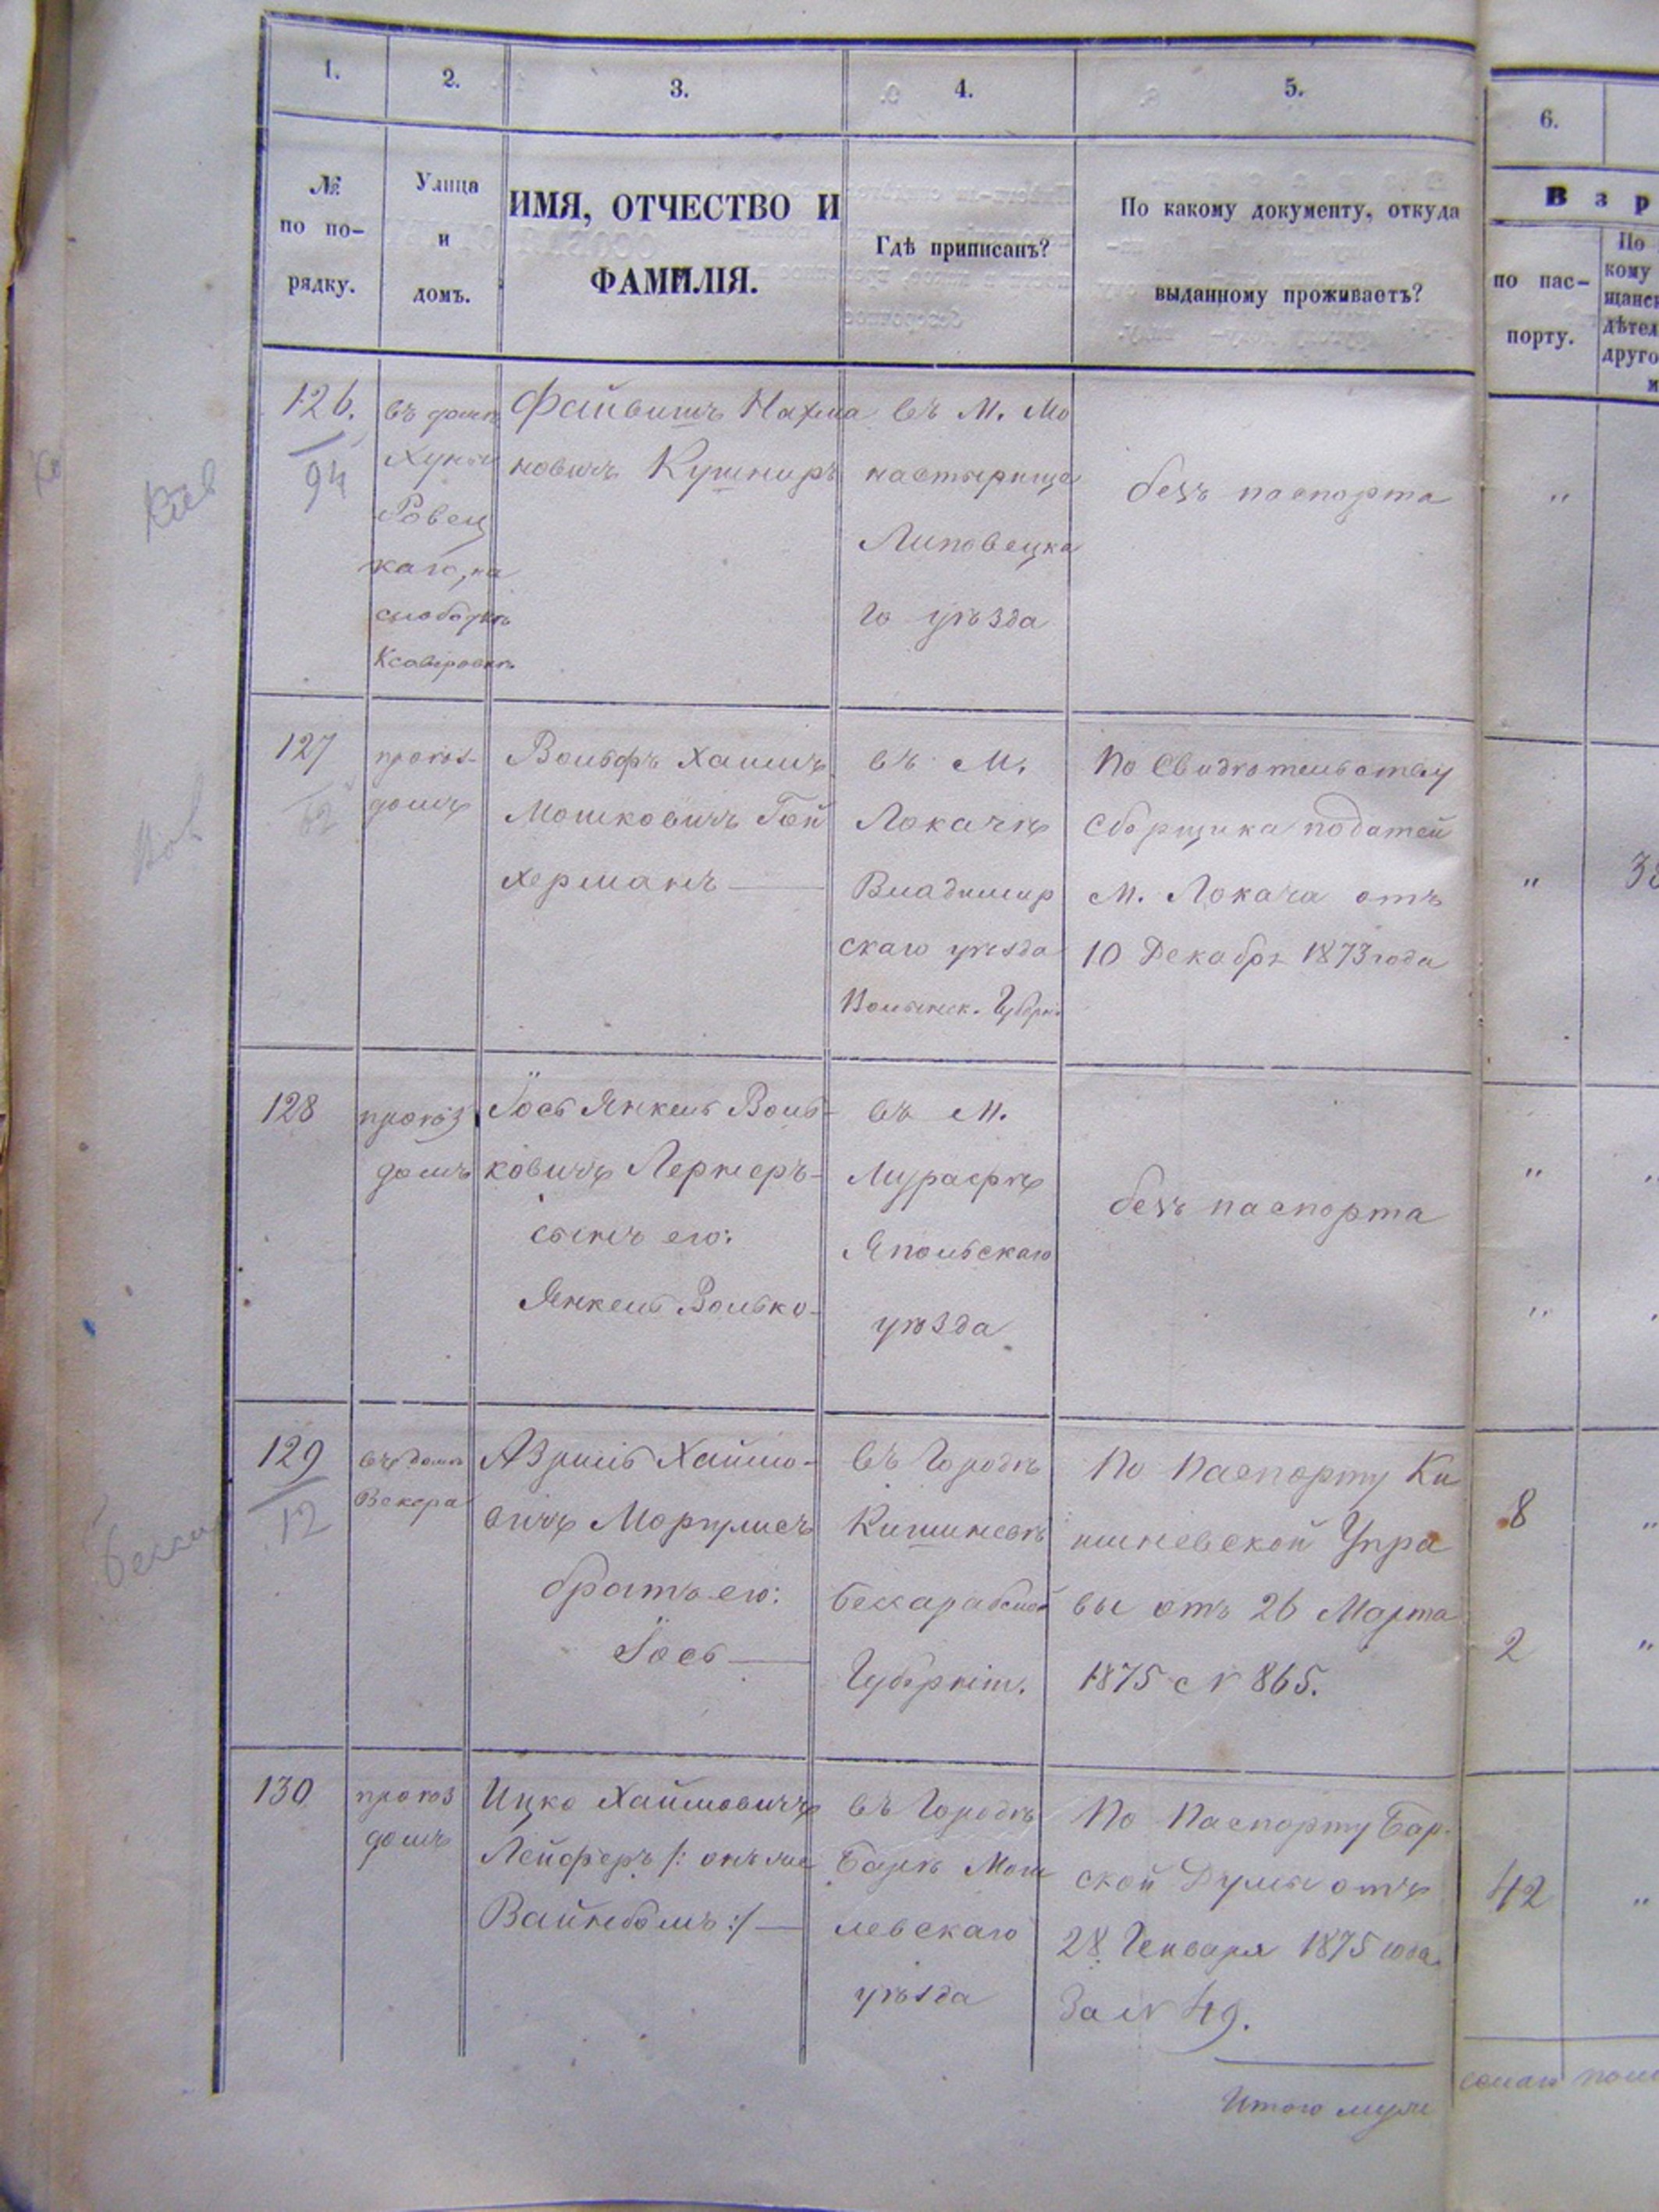 1.
2.
3.
4.
5.
6.
№
по по-
рядку.
Улица
и
домъ.
ИМЯ, ОТЧЕСТВО И
ФАМИЛІЯ.
Гдѣ приписанъ?
По какому документу, откуда
выданному проживаетъ?
В з р
по пас-
порту.
По
кому
щанск
дѣтел
друго
126.
94
Кіев
въ домѣ
Ровец
каго, на
слободкѣ
Ксавѣровкѣ
Файвишъ Нахма
новичъ Кушниръ
въ М. Мо
настырища
Липовецка
го уѣзда
безъ паспорта
"
127
62
Вол
проѣз-
домъ
Вольфъ Хаимъ
Мошковичъ Гой
херманъ
въ М.
Локачѣ
Владимир
скаго уѣзда
Волынск. Губерн.
По Свидѣтельству
Сборщика податей
М. Локача отъ
10 Декабря 1873 года
"
128
проѣз
домъ
Іось Янкель Воль-
ковичъ Лернеръ-
сынъ его:
ЯнкельВолько-
въ М.
Мурафѣ
Ямпольскаго
уѣзда
безъ паспорта
"
"
129
12
Бесса
въ домѣ
Векера
Азриль Хаимо-
вичъ Маргулисъ
братъ его:
Іось
въ Городѣ
Кишиневѣ
Бессарабской
Губерніи.
По Паспорту Ки
шиневской Упра
вы отъ 26 Марта
1875 № 865.
8
"
2
"
130
проѣз
домъ
Ицко Хаимовичъ
Лейферъ /: онъ же
Вайнбомъ :/
въ Городѣ
Барѣ Мог
левскаго
уѣзда
По Паспорту Бар-
ской Думы отъ
28 Генваря 1875 года
За № 49.
42
"
Итого муж